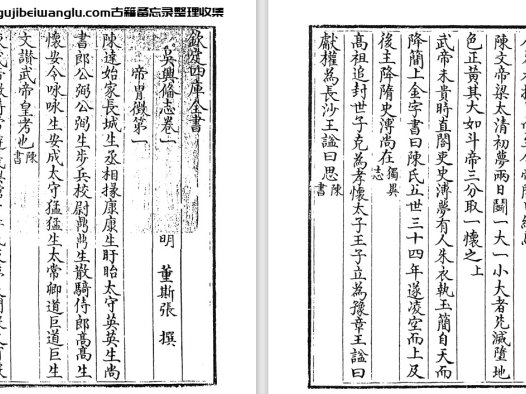 gujibeiwanglu.com古籍备忘录整理收集
欽定四庫全書
吳興備志卷一
明 董斯張 撰
帝胄徵第一
陳達始家長城生丞相掾康康生盱眙太守英英生尚
書郎公弼公弼生步兵校尉鼎鼎生散騎侍郎高高生
懷安令咏咏生安成太守猛猛生太常卿道巨道巨生
文讃武帝皇考也陳書
陳文帝梁太清初夢兩日鬬一大一小大者先滅墮地
色正黃其大如斗帝三分取一懷之上
武帝未貴時直閤吏史溥夢有人朱衣執玉簡自天而
降簡上金字書曰陳氏五世三十四年遂凌空而上及
後主降隋史溥尚在獨異志
高祖追封世子克為孝懷太子王子立為豫章王諡曰
獻權為長沙王諡曰思陳書